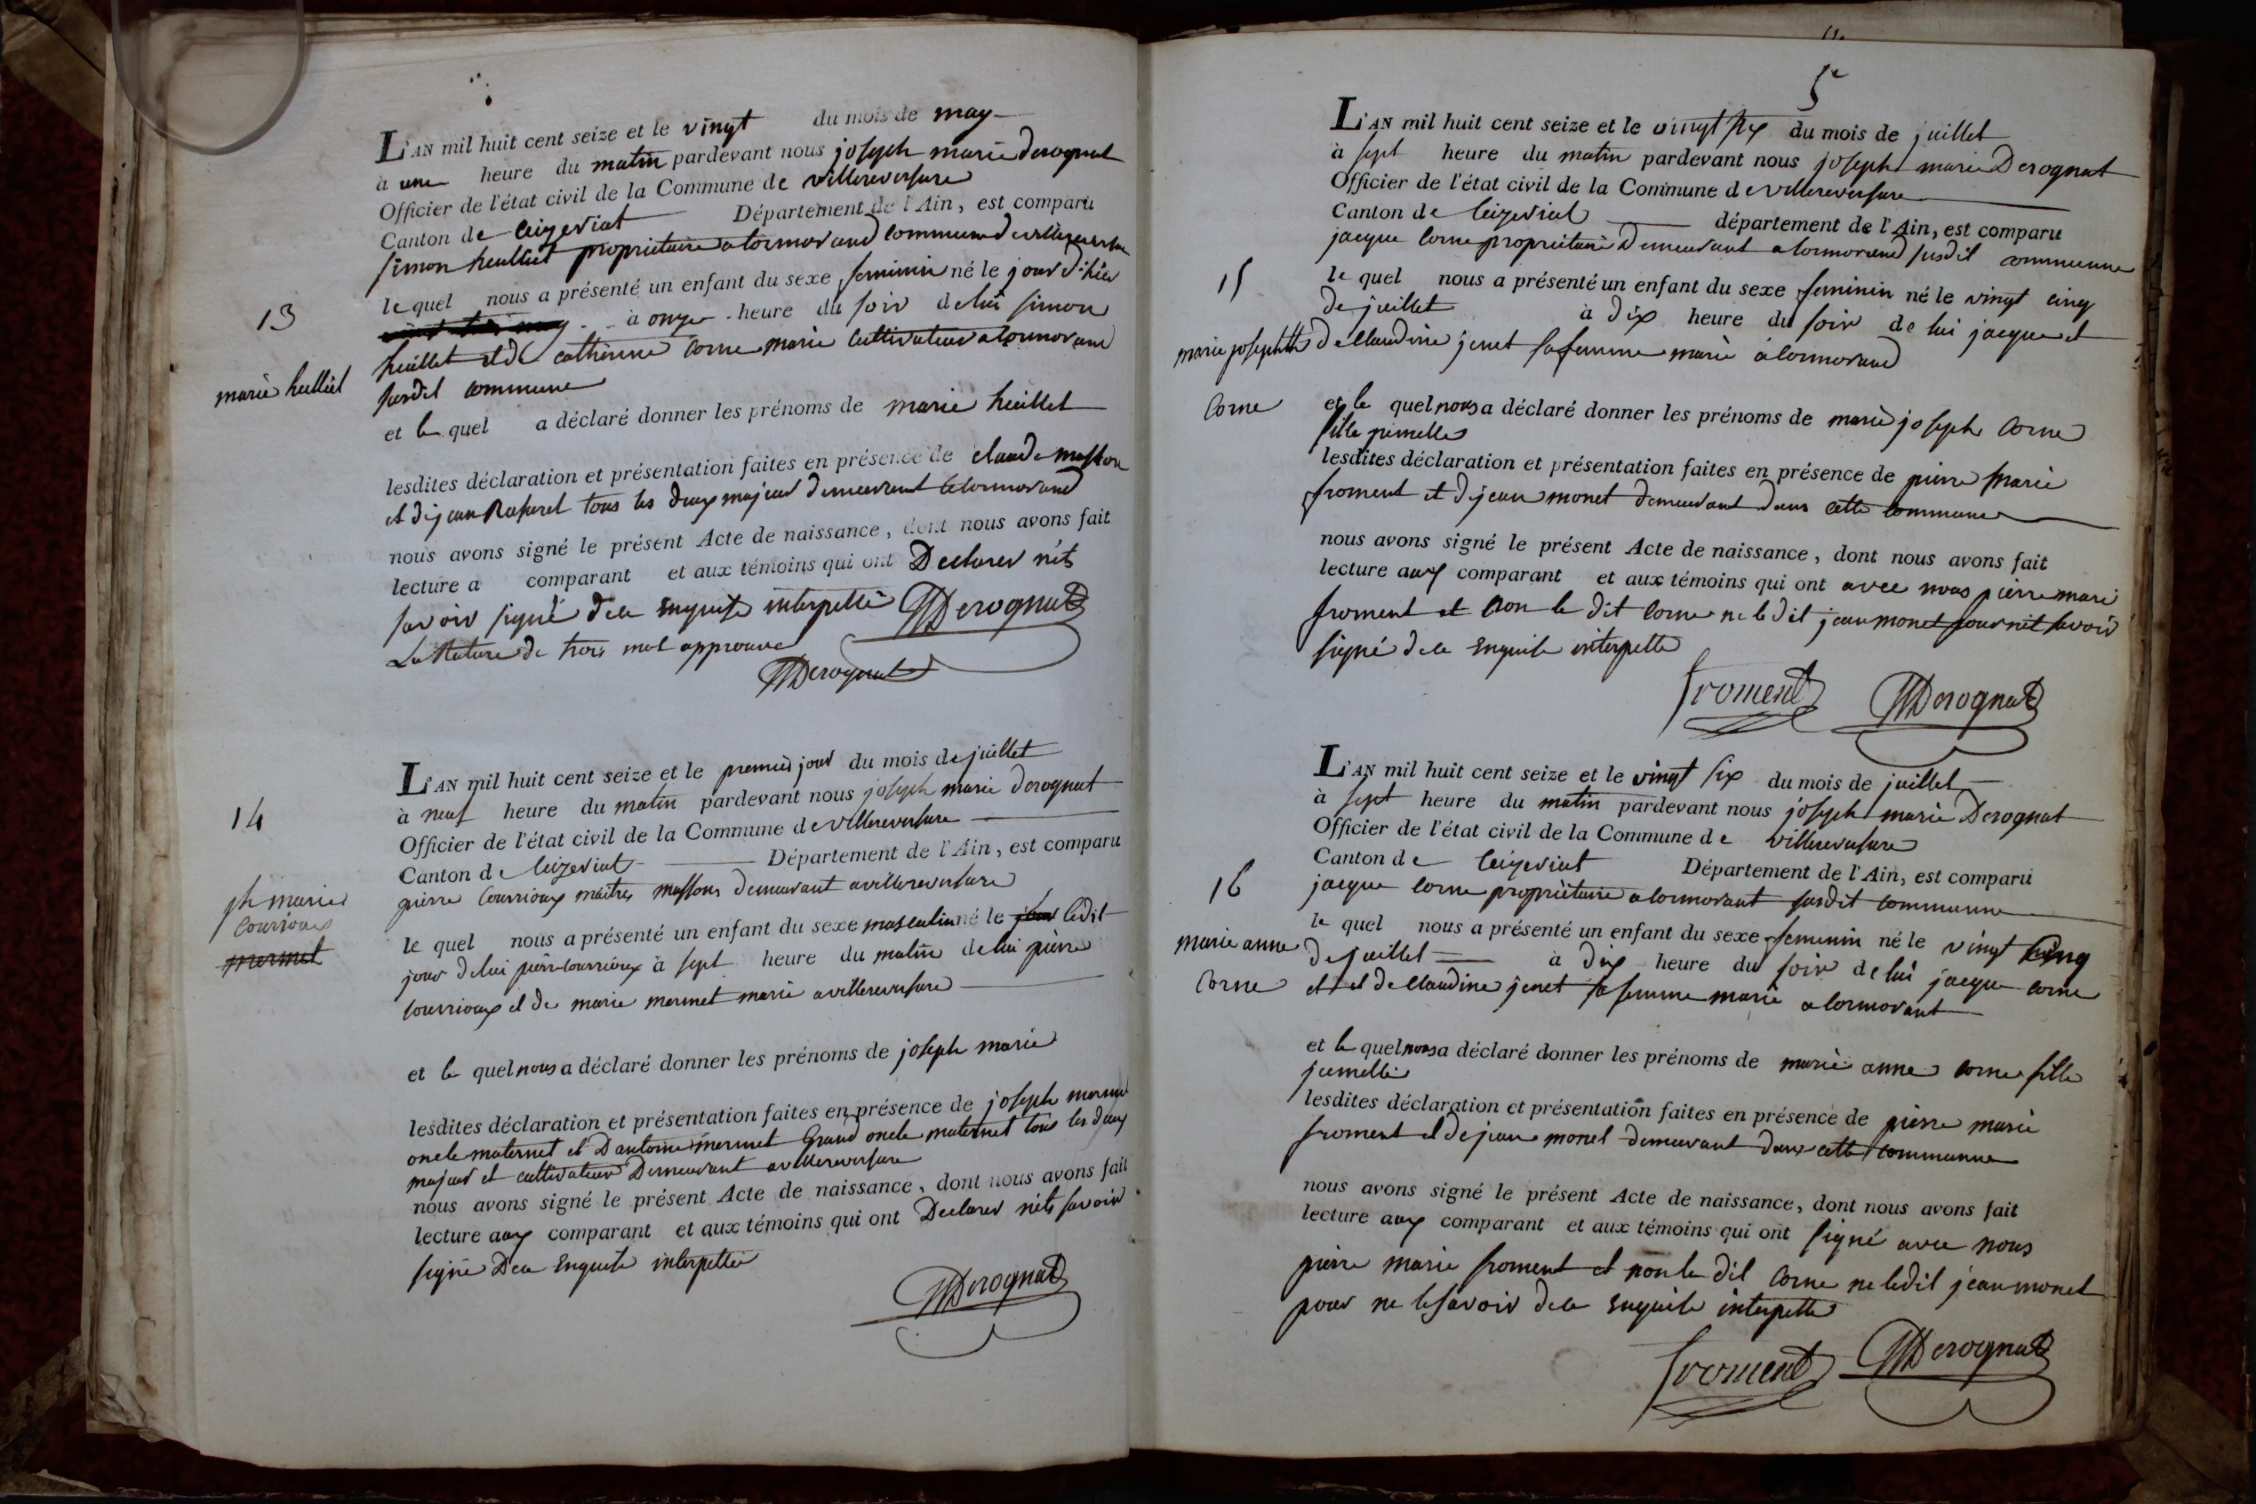 L'AN mil huit cent seize et le vingt du mois de may
à une heure du matin pardevant nous joseph marie derognat
Officier de l'état civil de la Commune de villereversure
Canton de Ceizeriat Département de l'Ain, est comparu
simon huillet propriétaire a cormorand commune de villereversure
13
le quel nous a présenté un enfant du sexe feminin né le jour d'hier
à onze heure du soir de lui simon
huillet et de catherine Corne marié Cultivateur a Cormorand
marie huilliet
susdit commune
et le quel a déclaré donner les prénoms de marie huillet
lesdites déclaration et présentation faites en présence de claude masson
et de jean tous les deux majeur demeurant a Cormorand
nous avons signé le présent Acte de naissance, dont nous avons fait
lecture a comparant et aux témoins qui ont Declarer n'ets
savoir signé de ce Enquist interpellé Derognat
La Rature de trois mot approuvé
Derognat
L'AN mil huit cent seize et le premier jour du mois de juillet
à neuf heure du matin pardevant nous joseph marie derognat
14
Officier de l'état civil de la Commune de villereversure
Canton de Ceizeriat Département de l'Ain, est comparu
pierre Courrioux maitre masson demeurant a villereversure
ph marie
Courrioux
mermet
le quel nous a présenté un enfant du sexe masculin né le jour ledit
jour de lui pierre courrioux à sept heure du matin de lui pierre
courrioux et de marie mermet marié a villereversure
et le quel nous a déclaré donner les prénoms de joseph marie
lesdites déclaration et présentation faites en présence de joseph mermet
oncle maternet et D'antoine mermet Grand oncle maternet tous les deux
majeur et cultivateur Demeurant a villereversure
nous avons signé le présent Acte de naissance, dont nous avons fait
lecture aux comparant et aux témoins qui ont Declarer n'ets savoir
signé De ce Enquist interpellé
Derognat
5
L'AN mil huit cent seize et le vingt six du mois de juillet
à sept heure du matin pardevant nous joseph marie Derognat
Officier de l'état civil de la Commune de villereversure
Canton de Ceizeriat département de l'Ain, est comparu
jacque Corne propriétaire Demeurant a Cormorand susdit communne
15
le quel nous a présenté un enfant du sexe feminin né le vingt cinq
de juillet à dix heure du soir de lui jacque et
marie josephtte
de Claudine jenet sa femme marié à Cormorand
Corne
et le quel nous a déclaré donner les prénoms de marie joseph Corne
fille jumelle
lesdites déclaration et présentation faites en présence de pierre marie
froment et de jean monet demeurant dans cette commune
nous avons signé le présent Acte de naissance, dont nous avons fait
lecture aux comparant et aux témoins qui ont avec nous pierre marie
froment et non le dit Corne ne le dit jean monet pour net savoir
signé de ce Enquist interpellé
froment Derognat
L'AN mil huit cent seize et le vingt six du mois de juillet
à sept heure du matin pardevant nous joseph marie Derognat
Officier de l'état civil de la Commune de villereversure
Canton de Ceizeriat Département de l'Ain, est comparu
16
jacque Corne propriétaire a Cormorant susdit communne
le quel nous a présenté un enfant du sexe feminin né le vingt Cinq
marie anne
Corne
de juillet à dix heure du soir de lui jacque corne
et et de Claudine jenet sa femme marié a Cormorant
et le quel nous a déclaré donner les prénoms de marie anne corne fille
jumelle
lesdites déclaration et présentation faites en présence de pierre marie
froment et de jean monet demeurant dans cette communne
nous avons signé le présent Acte de naissance, dont nous avons fait
lecture aux comparant et aux témoins qui ont signé avec nous
pierre marie froment et non le dit Corne ne ledit jean monet
pour ne le savoir de ce Enquist interpellé
froment Derognat